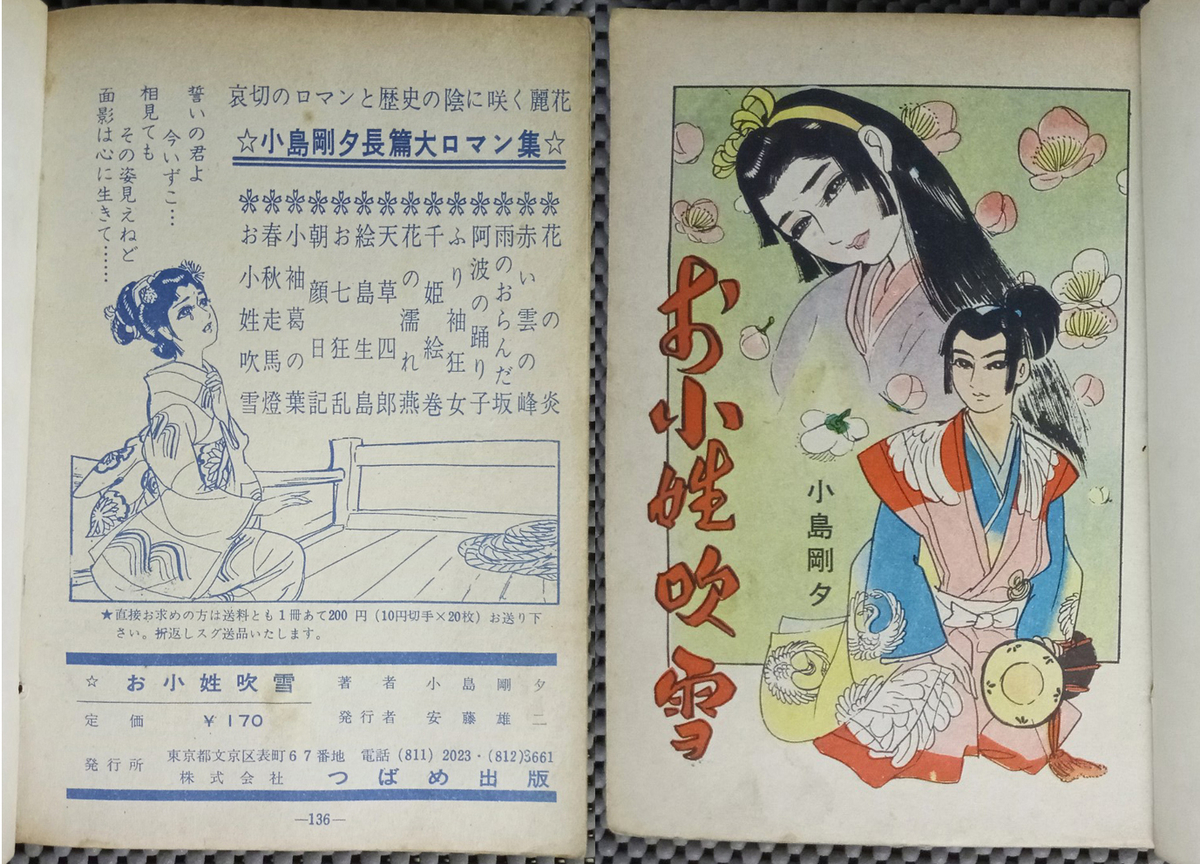 哀切のロマンと歴史の陰に咲く麗花
☆小島剛夕長篇大ロマン集☆
花の炎
赤い雲の峰
雨のおらんだ坂
阿波の踊り子
ふり袖狂女
千姫絵巻
花の濡れ燕
天草四郎
絵島生島
お七狂乱
朝顔日記
小袖葛の葉
春秋走馬燈
お小姓吹雪
誓いの君よ
今いずこ…
相見ても
その姿見えねど
面影は心に生きて……
★直接お求めの方は送料とも1冊あて200円(10円切手×20枚)お送り下
さい。折返しスグ送品いたします。
☆ お小姓吹雪 著者 小島剛夕
定価 ¥170 発行者 安藤雄二
発行所 東京都文京区表町67番地 電話(811)2023・(812)3661
株式会社 つばめ出版
—136—
お小姓吹雪
小島剛夕